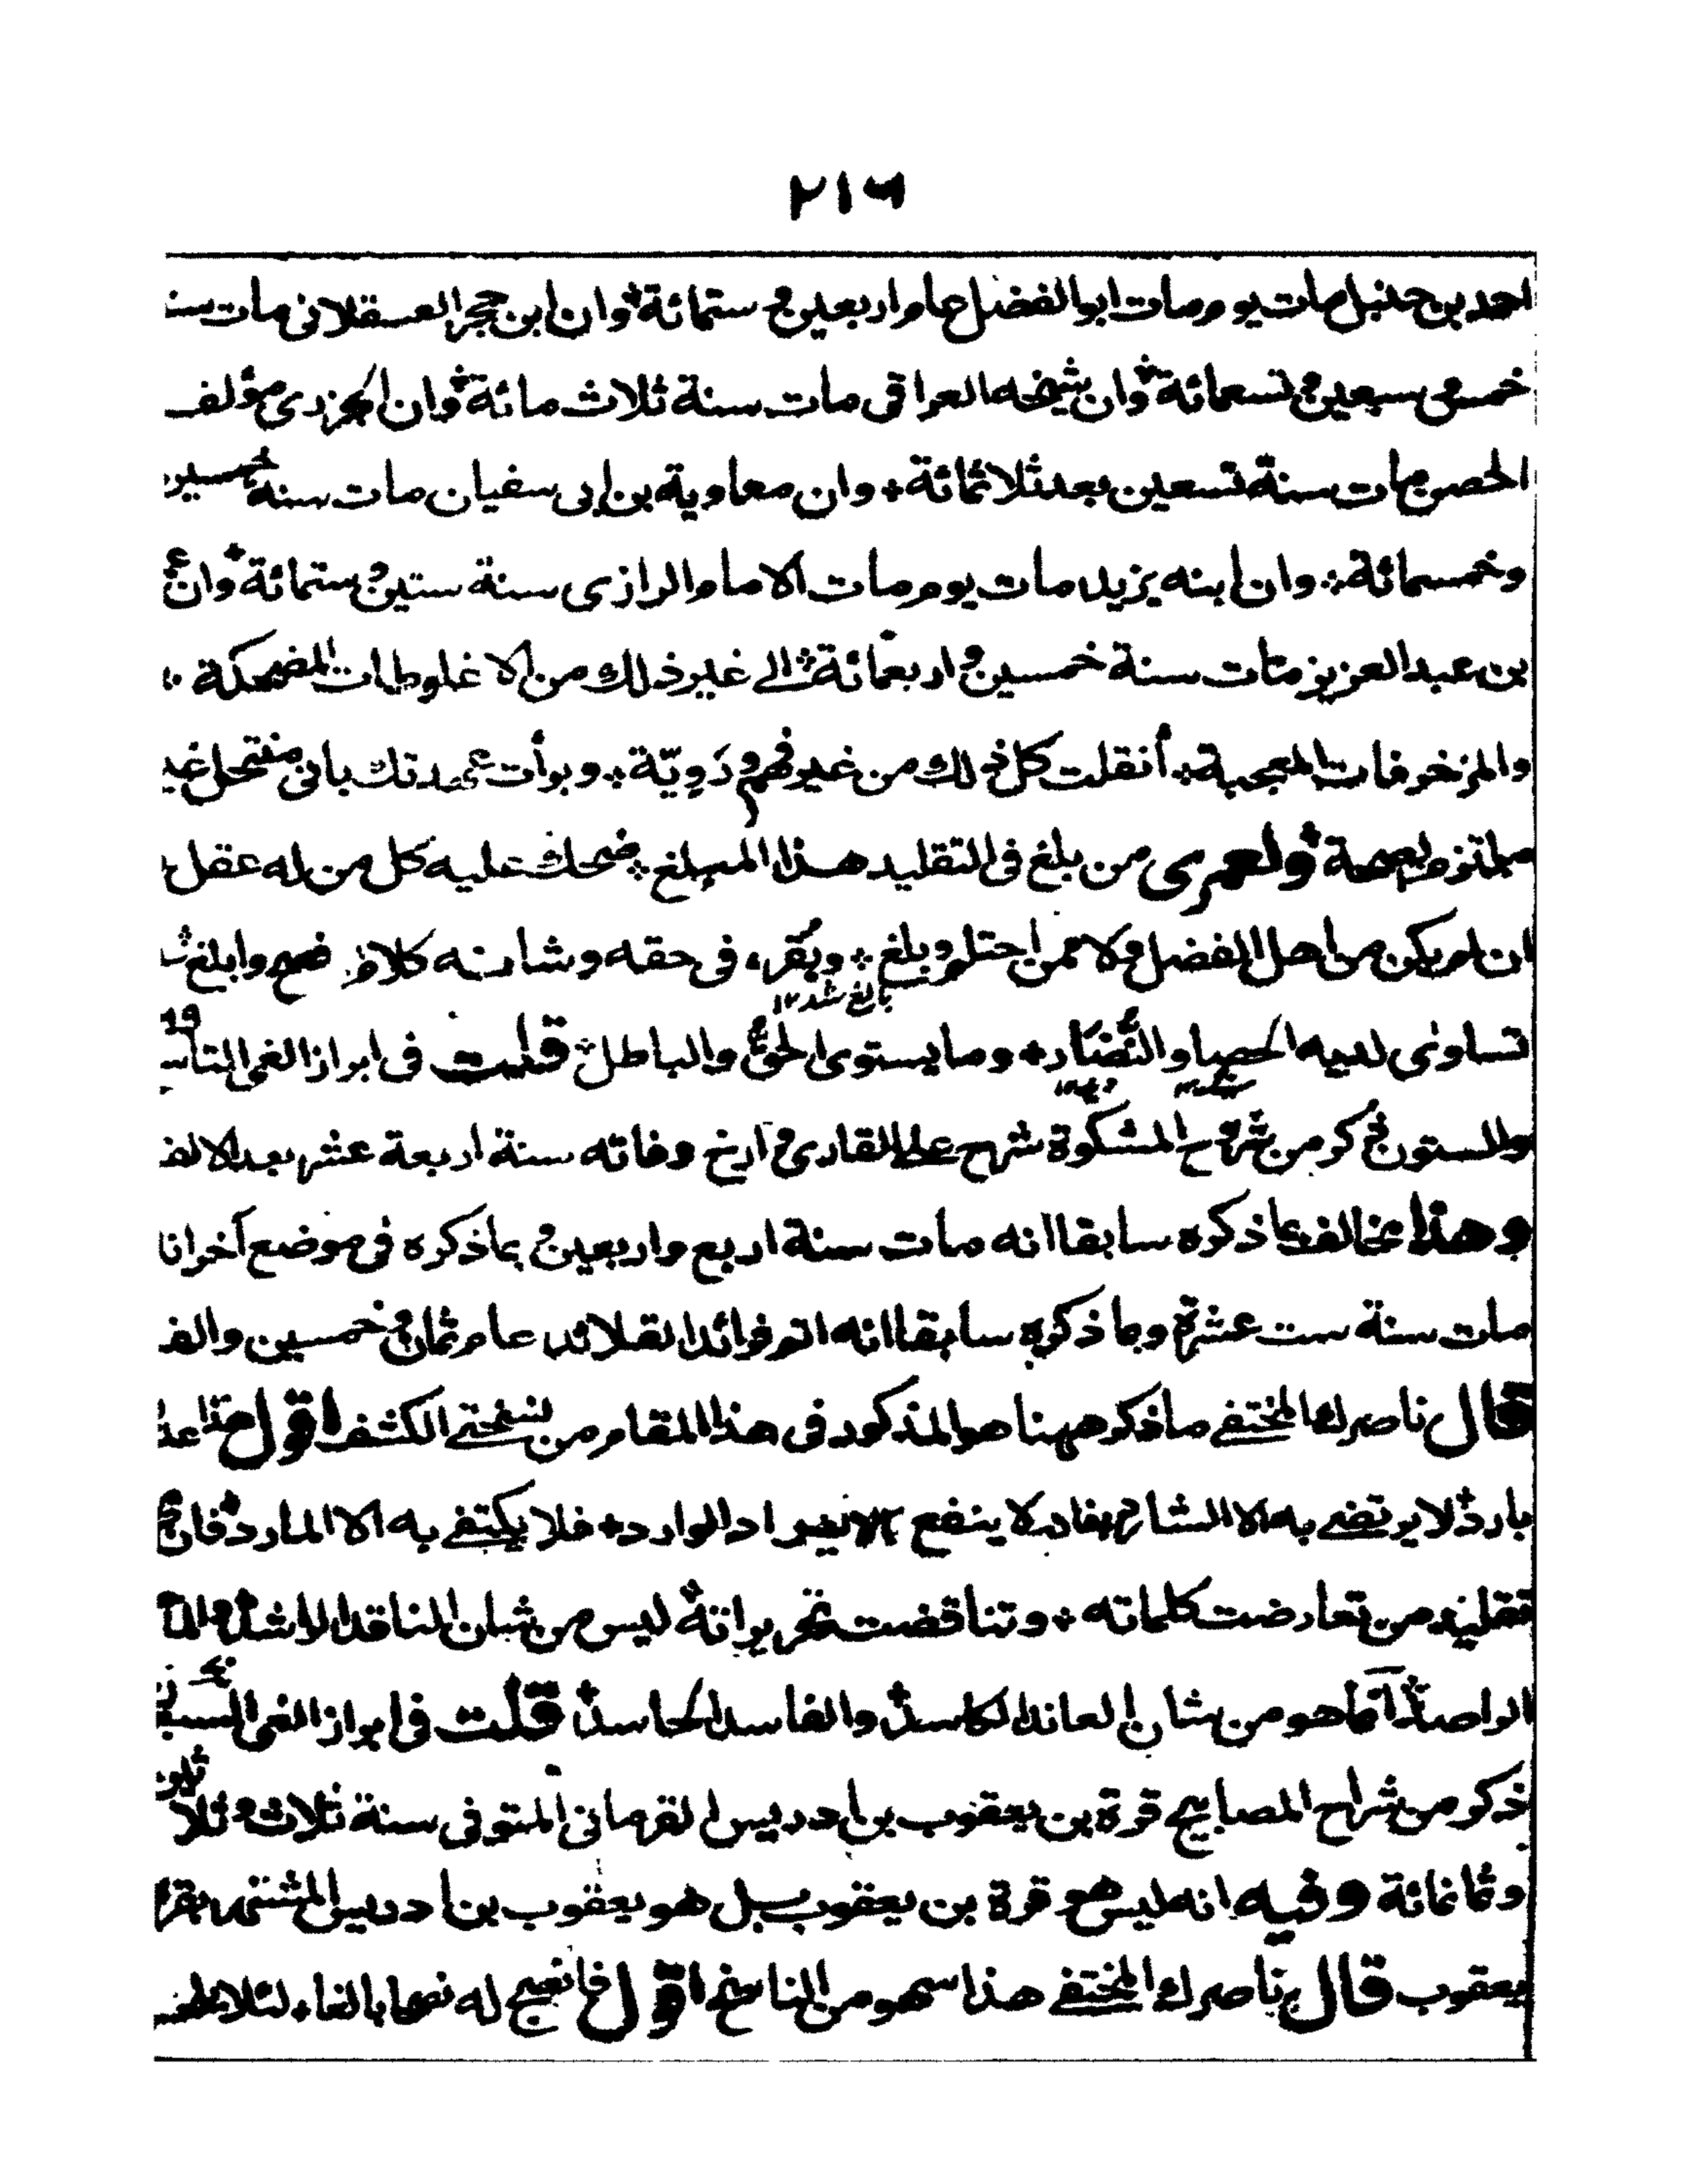 ٢١٦
احمد بن حنبل مات يوم مات ابو الفضل عام اربعين و ستمائة وان ابن حجر العسقلانى مات سن
خمس و سبعين و تسعمائة وان شيخه العراقى مات سنة ثلاث مائة وان الجزرى مؤلف
الحصن مات سنة تسعين بعد ثلاثمائة وان معاوية بن ابى سفيان مات سنة خمسين
وخمسمائة وان ابنه يزيد مات يوم مات الامام الرازى سنة ستين و ستمائة وان
بن عبد العزيز مات سنة خمسين و اربعمائة الى غير ذلك من الاغلوطات المضحكة
والمزخرفات المعجبة أنقلت كل ذلك من غير فهم و رَوِيّة وبوأت عهدتك بانى منتحل غير
ملتزم لصحة ولعمرى من بلغ فى التقليد هذا المبلغ ضحك عليه كل من له عقل
ان لم يكن من اهل الفضل و لا ممن احتلم و بلغ ويُقرء فى حقه وشانه كلام فصيح وابلغ
بالغ شد ١٢
تساوٰى لديه الحصا والنُّضَار وما يستوى الحق والباطل قلت فى ابراز الغى التاسع
١٩
والستون ذكر من شروح المشكوة شرح على القارى و ارخ وفاته سنة اربعة عشر بعد الالف
وهذا مخالف لما ذكره سابقا انه مات سنة اربع واربعين و بما ذكره فى موضع آخر انه
مات سنة ست عشرة وبما ذكره سابقا انه اتم فوائد القلائد عام ثمان و خمسين والف
قال ناصرك المختفى ما ذكر ههنا هو المذكور فى هذا المقام من نسختى الكشف اقول هذا عذر
بارد لا يرتضى به الا الشارد لا ينفع الايراد الوارد فلا يكتفى به الا المارد فان
تقليد من تعارضت كلماته وتناقضت تحريراته ليس من شان الناقد الراشد
الراصد انما هو من شان العاند الكاسد والفاسد الحاسد قلت فى ابراز الغى السبعون
ذكر من شراح المصابيح قرة بن يعقوب بن ادريس القرمانى المتوفى سنة ثلاث و ثلاثين
وثمانمائة وفيه انه ليس هو قرة بن يعقوب بل هو يعقوب بن ادريس المشتهر بقرة
يعقوب قال ناصرك المختفى هذا سهو من الناسخ اقول فانصح له نصحا بالغا لئلا